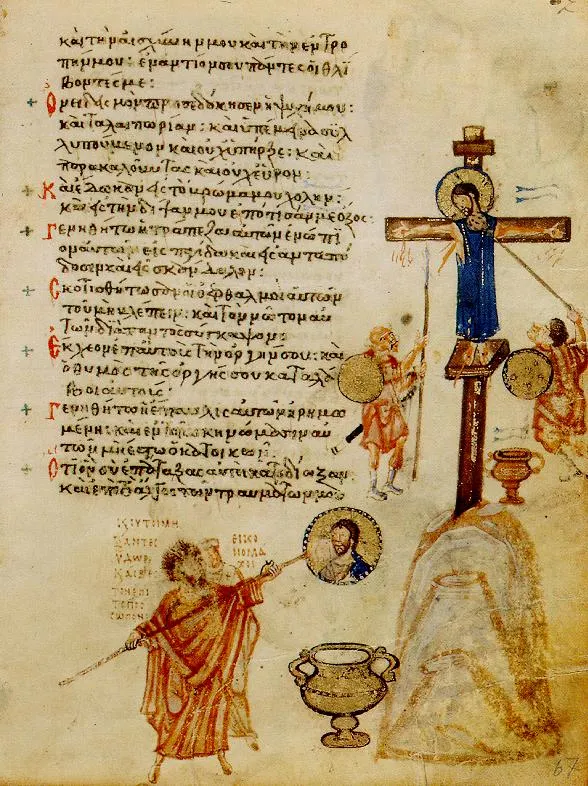 καὶ τὴν αἰσχύνην μου καὶ τὴν ἐντρο
πήν μου: ἐναντίον σου πάντες οἱ θλί
βοντές με:
Ὀνειδισμὸν προσεδόκησεν ἡ ψυχή μου:
καὶ ταλαιπωρίαν: καὶ ὑπέμεινα συλ
λυπούμενον καὶ οὐχ ὑπῆρχε: καὶ
παρακαλοῦντας καὶ οὐχ εὗρον:
Καὶ ἔδωκαν εἰς τὸ βρῶμά μου χολήν:
καὶ εἰς τὴν δίψαν μου ἐπότισάν με ὄξος
Γενηθήτω ἡ τράπεζα αὐτῶν ἐνώπι
ον αὐτῶν εἰς παγίδα καὶ εἰς ἀνταπό
δοσιν καὶ εἰς σκάνδαλον:
Σκοτισθήτωσαν οἱ ὀφθαλμοὶ αὐτῶν
τοῦ μὴ βλέπειν: καὶ τὸν νῶτον αὐ
τῶν διὰ παντὸς σύγκαμψον:
Ἔκχεον ἐπ αὐτοὺς τὴν ὀργήν σου: καὶ
ὁ θυμὸς τῆς ὀργῆς σου καταλά
βοι αὐτούς:
Γενηθήτω ἡ ἔπαυλις αὐτῶν ἠρημω
μένη: καὶ ἐν τοῖς σκηνώμασιν αὐ
τῶν μὴ ἔστω ὁ κατοικῶν
Ὅτι ὃν σὺ ἐπάταξας αὐτοὶ κατεδίωξαν
καὶ ἐπὶ τὸ ἄλγος τῶν τραυμάτων μου
ΞΑΝΤΕΣ
ΥΔΩΡ
ΕΙΚΟ
ΝΟΜΑ
ΧΟΙ
67